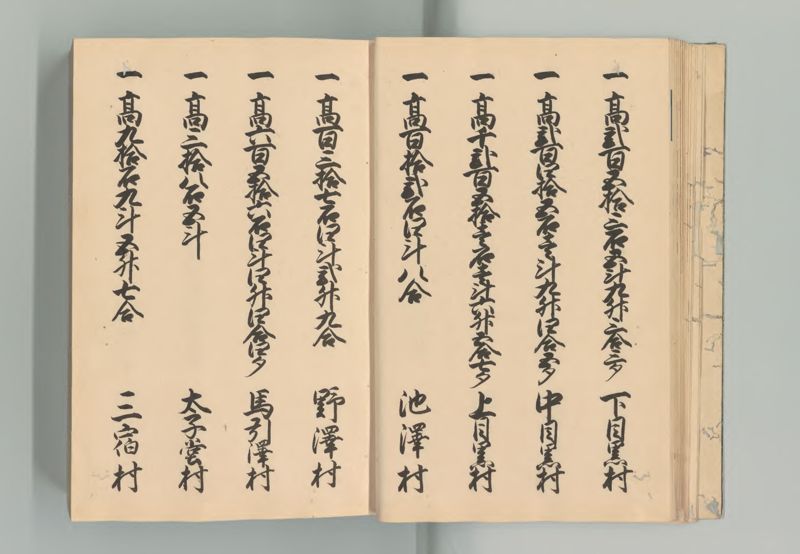 一 高弐百五拾三石五斗九升三合三夕 下目黒村
一 高弐百四拾五石壱斗九升四合五夕 中目黒村
一 高千弐百五拾壱石壱斗六升五合七夕 上目黒村
一 高百拾弐石四斗八合 池澤村
一 高百三拾七石四斗弐升九合 野澤村
一 高六百五拾六石四斗四升四合四夕 馬引澤村
一 高二拾八石五斗 太子堂村
一 高九拾石九斗五升七合 三宿村